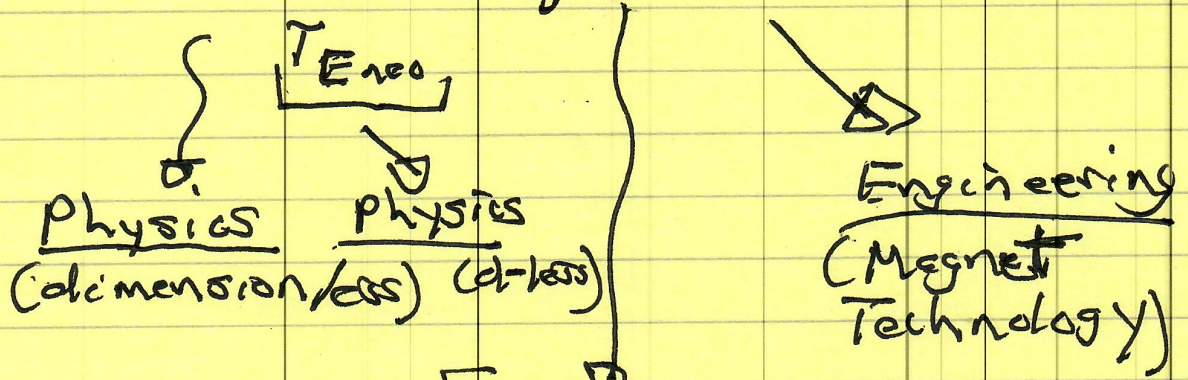 Physics
(dimensionless)
Physics
(d-less)
Engineering
(Magnet
Technology)